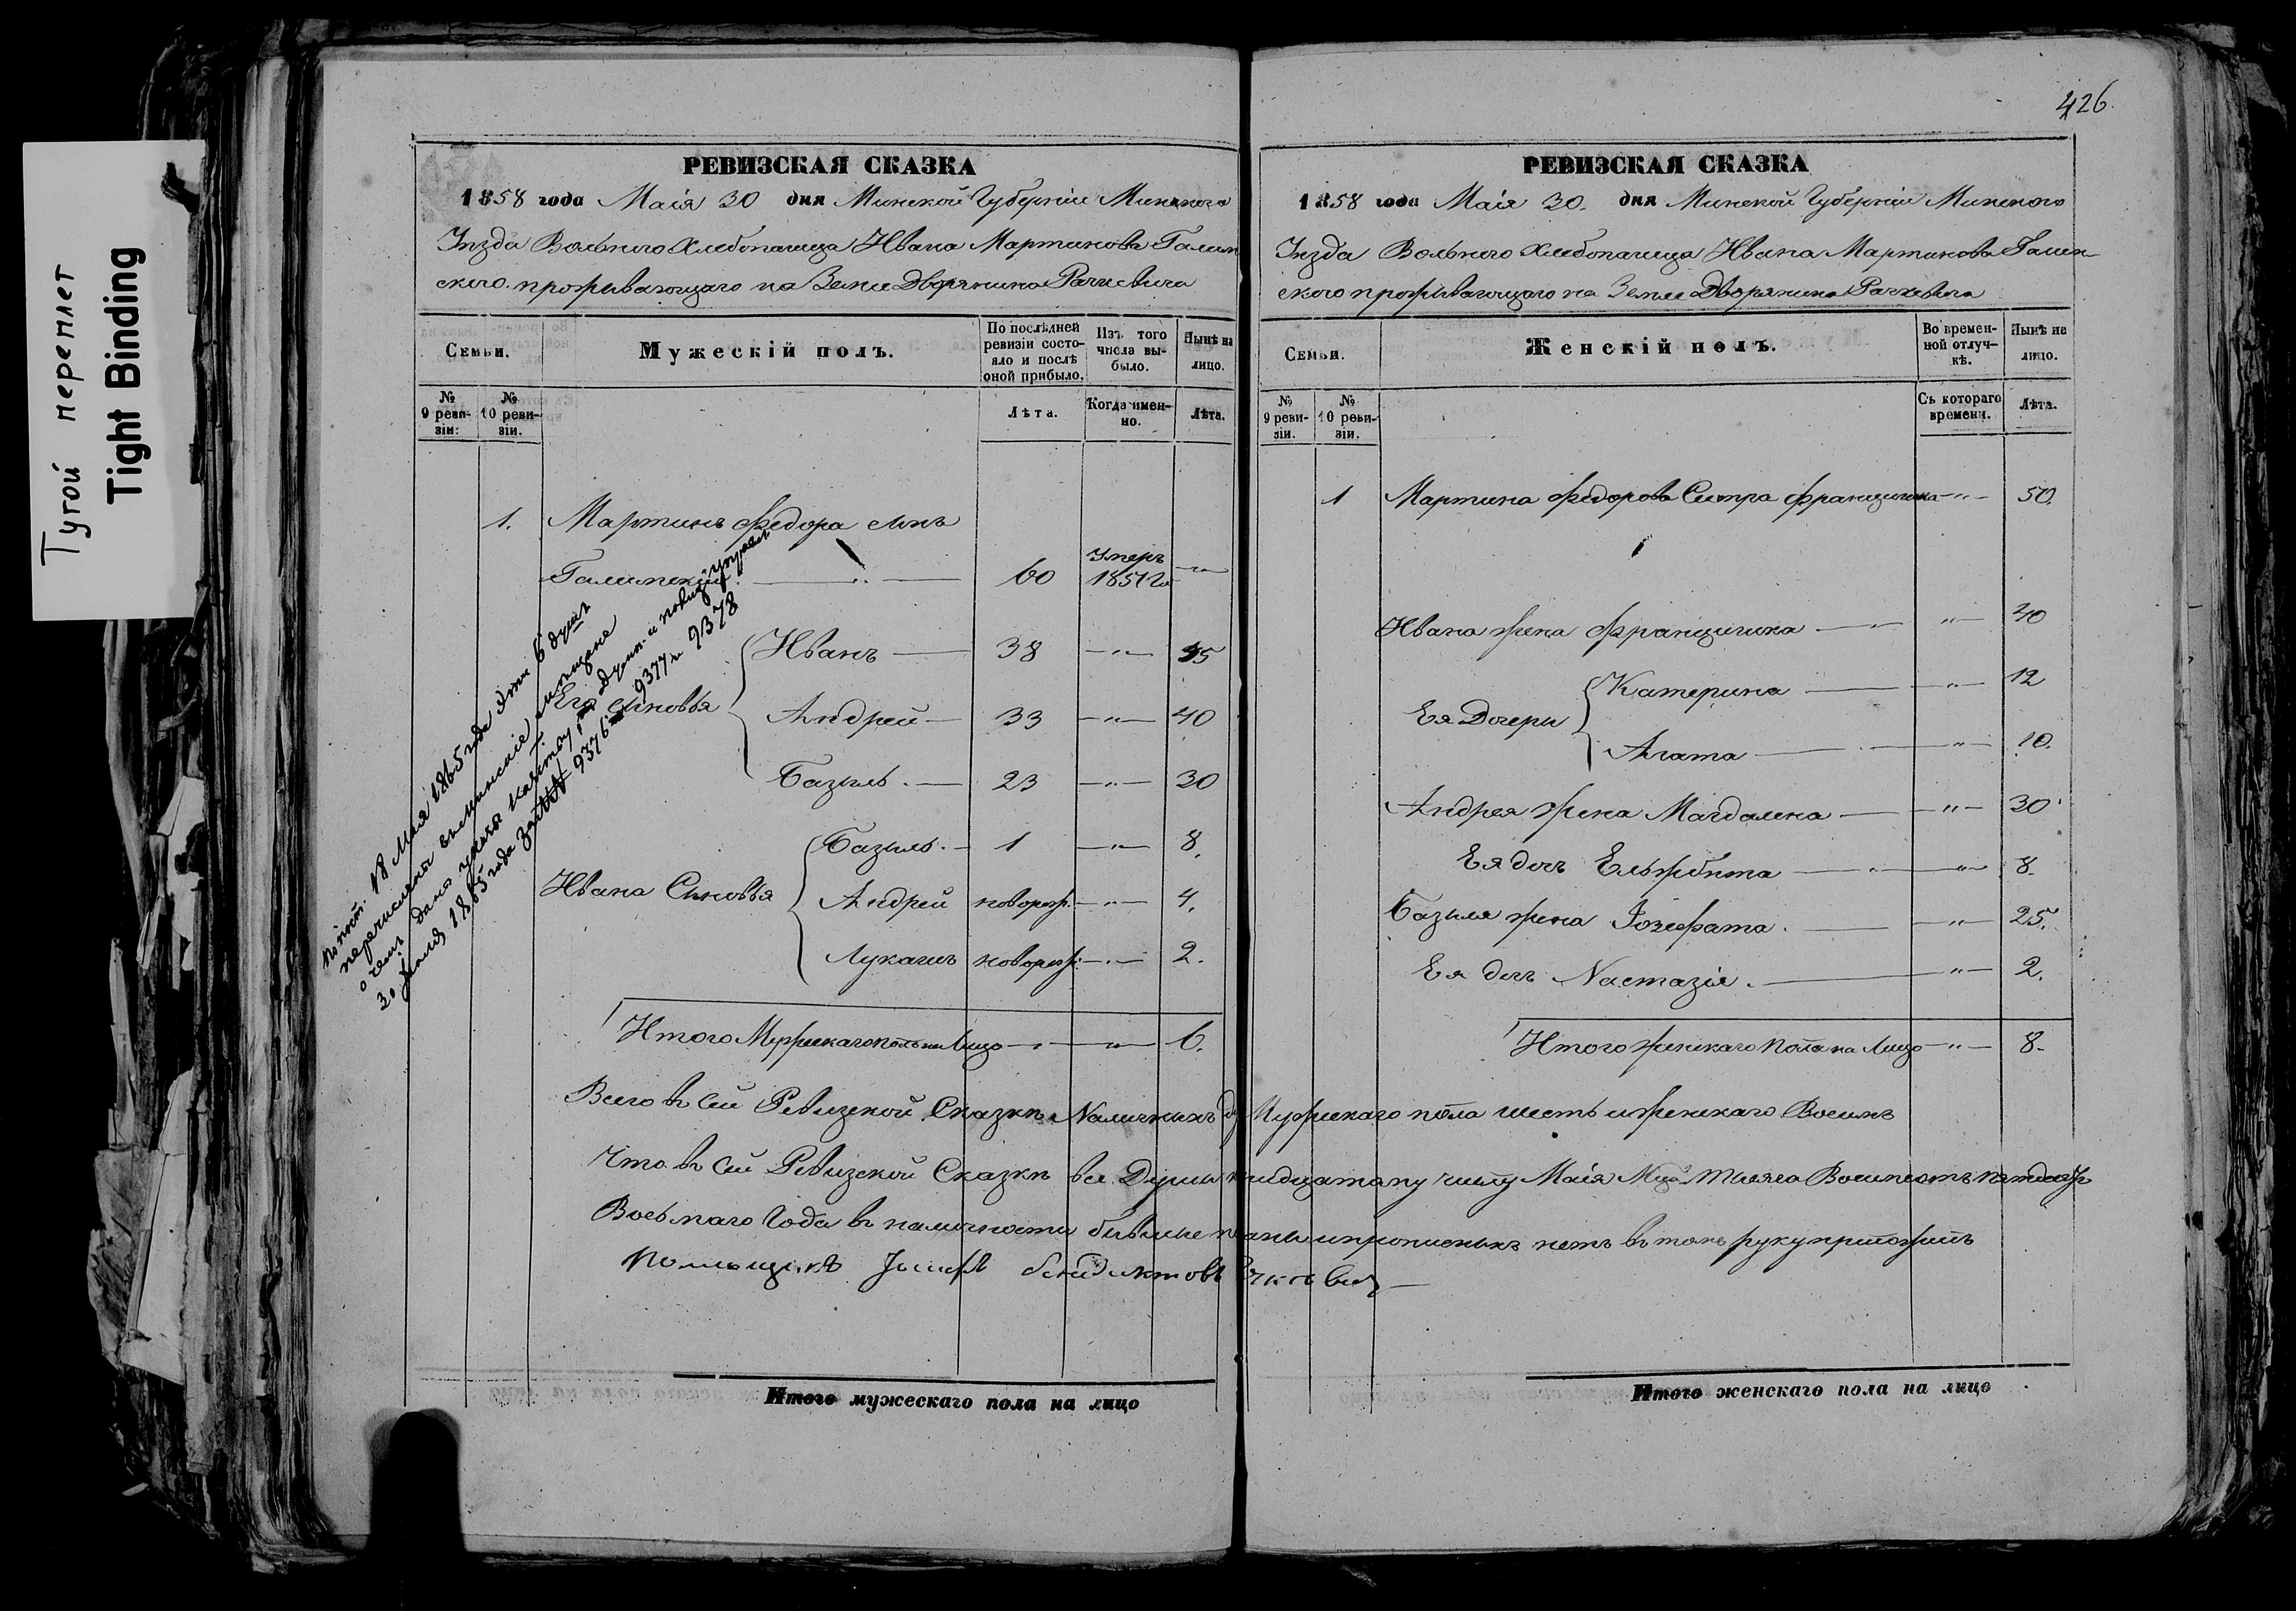 Тугой переплет
Tight Binding
426.
РЕВИЗСКАЯ СКАЗКА
1858 года Маія 30 дня Минской Губерніи Минского
Уѣзда Вольного Хлебопашца Ивана Мартинова Галим
ского проживающаго на Земле Дворянина Рачкевича
Семьи.
Мужескій полъ.
По послѣдней ревизіи состояло и послѣ оной прибыло.
Изъ того числа выбыло.
Нынѣ на лицо.
№ 9 ревизіи:
№ 10 ревизіи.
Лѣта.
Когда именно.
Лѣта.
1. Мартинъ Федора сынъ
Галимский 60 Умеръ 1851 го
Его Сыновья
Иванъ 38 45
Андрей 33 40
Базыль 23 30
Ивана Сыновья
Базыль 1 8.
Андрей новорож. 4.
Лукашъ новорож. 2.
Итого Мужескаго пола на Лицо 6.
18 Мая 1865 года эти 6 душъ
перечислены мещане
о чемъ дано знать
30 1865 года за №№ 9376 9377 и 9378
РЕВИЗСКАЯ СКАЗКА
1858 года Маія 30. дня Минской Губерніи Минского
Уѣзда Вольного Хлебопашца Ивана Мартинова Галим
ского проживающаго на Земле Дворянина Рачкевича
Семьи.
Женскій полъ.
Во временной отлучкѣ.
Нынѣ на лицо.
№ 9 ревизіи.
№ 10 ревизіи.
Съ котораго времени.
Лѣта.
1 Мартина Федорова Сестра Францишка 50.
Ивана жена Францишка 40
Ея Дочери
Катерина 12
Агата 10.
Андрея жена Магдалена 30
Ея дочь Ельжбѣта 8.
Базыля жена Іозефата 25.
Ея дочь Настазія 2.
Итого женскаго пола на Лицо 8.
Всего въ Сей Ревизской Сказкѣ Наличныхъ Мужескаго пола шесть и женскаго Восемь
Что въ Сей Ревизской Сказкѣ все Души тридцатому числу Маія Мца Тысяча Восемсотъ пятдесят
Восьмаго Года въ наличности бывшие показаны и прописныхъ нетъ въ томъ руку приложилъ
Помещикъ Бенедиктовъ
Итого мужескаго пола на лицо
Итого женскаго пола на лицо